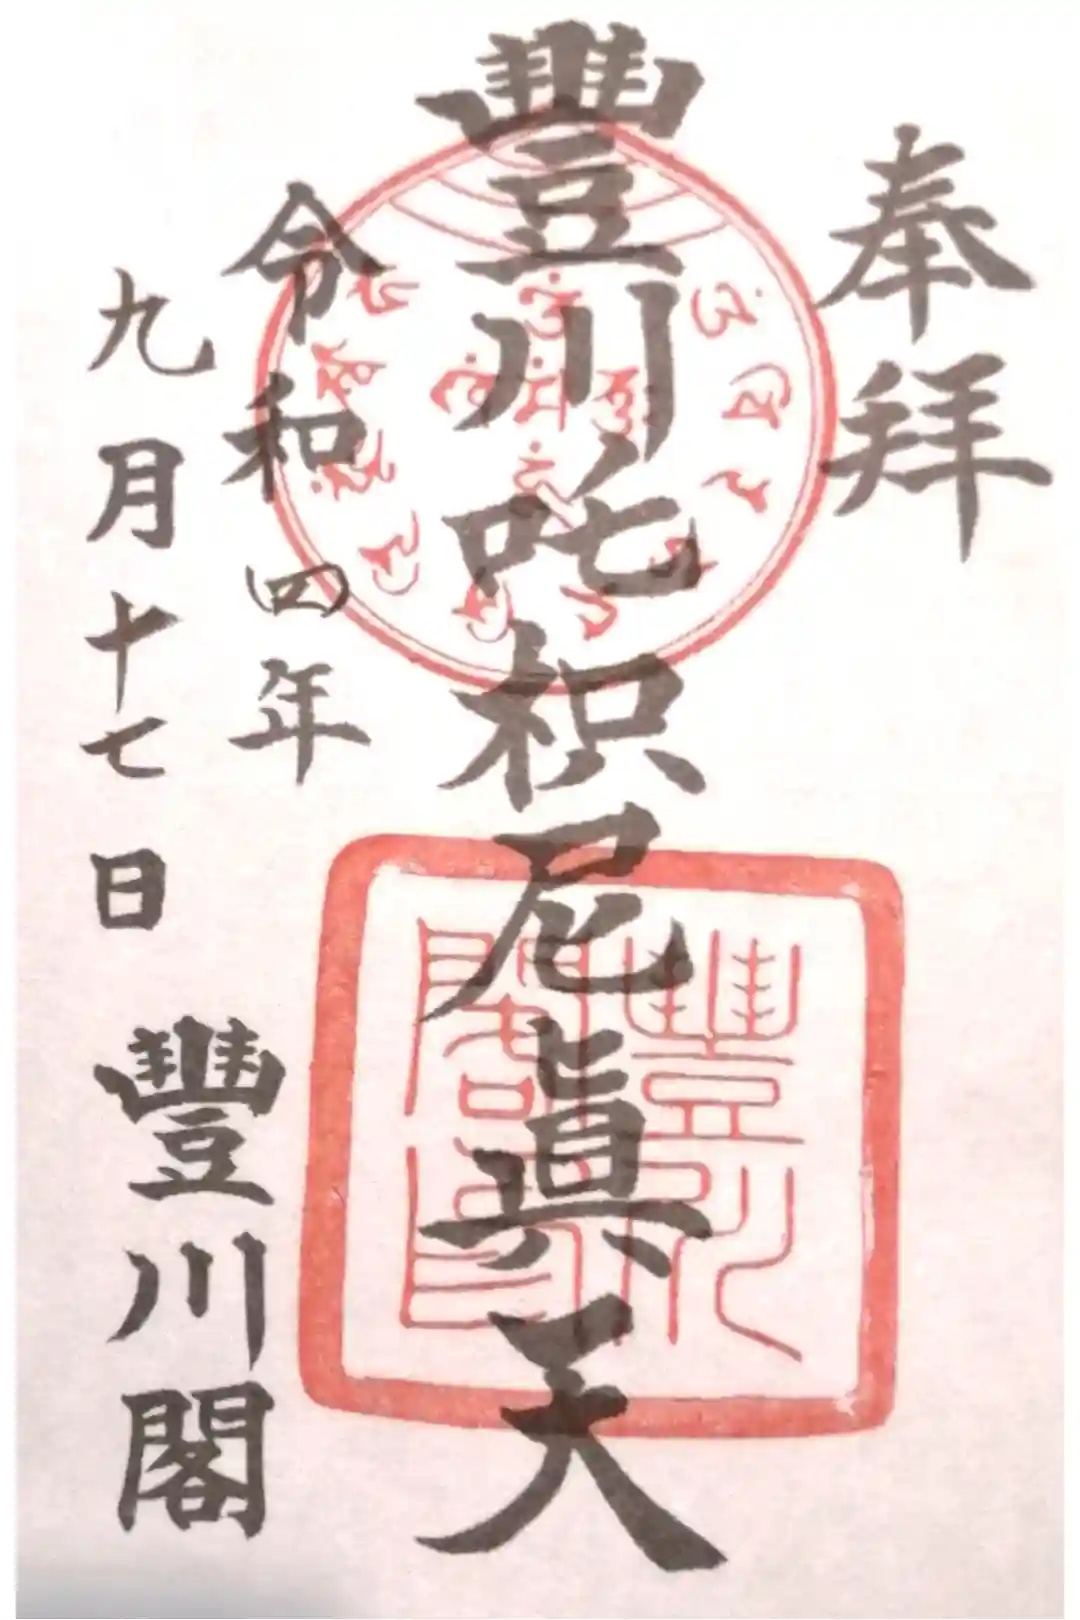 奉拝
豐川吒枳尼眞天
令和四年
九月十七日
豐川閣
豐川
閣印